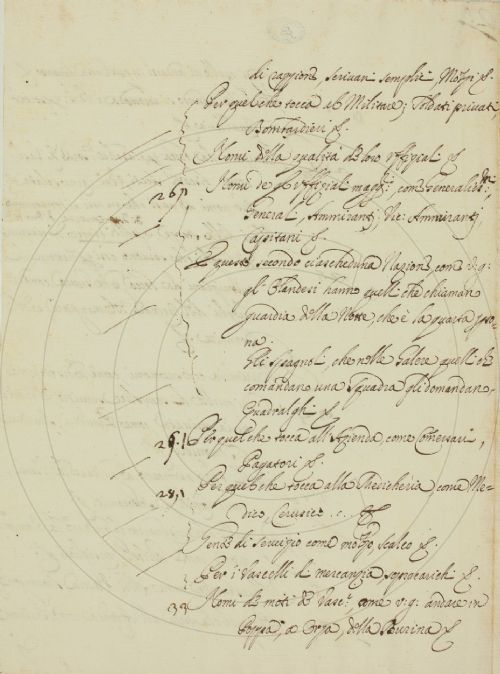 di raggione scrivan semplice Mozzi &.
Per quel che tocca al Militare; Soldati privati,
Bombardieri &.
Nomi della qualità de loro uffizial &.
26,
Nomi de gl'uffizial magg:i come Generaliss:
General, Ammiranti, Vic: Ammiranti,
Capitani &.
E questo secondo ciascheduna Nazione, come v:g:
gl'Olandesi hanno quell che chiaman
guardia della Notte, che è la quarta perso-
na.
Gli Spagnol, che nelle Galere quell ch
comandan una Squadra gli domandan
Quadralghi &.
Per quel che tocca all'Azienda, come Comessari,
Pagatori &.
28,
Per quel che tocca alla come Me-
dico, Cerusico &.
Gente di servizio come mozzo, scalco &.
Per i Vascelli di mercanzia sopracarichi &.
33
Nomi de moti de Vasc:i come v:g: andare in
Poppa, a Orza, della Burina &